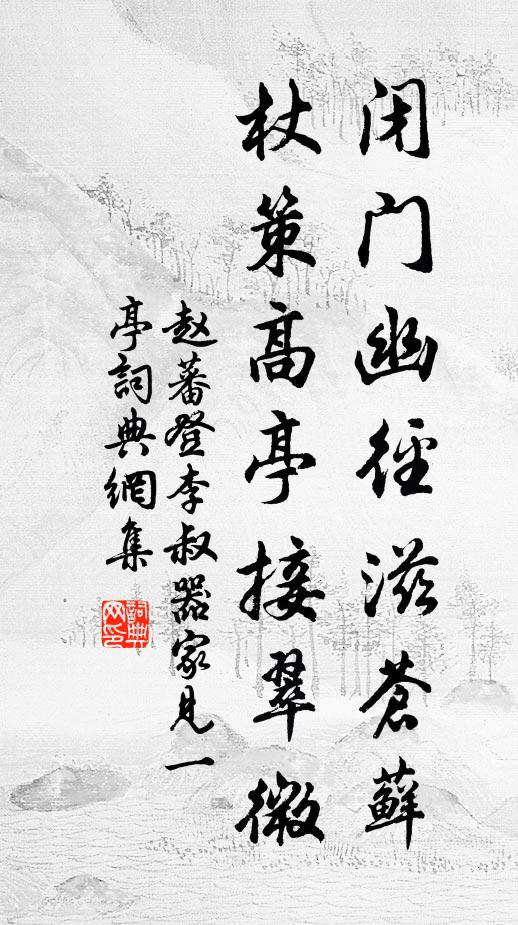 闭门幽径滋苍藓
杖策高亭接翠微
赵蕃登李叔器家见一
亭詞典網集
詞典
网印